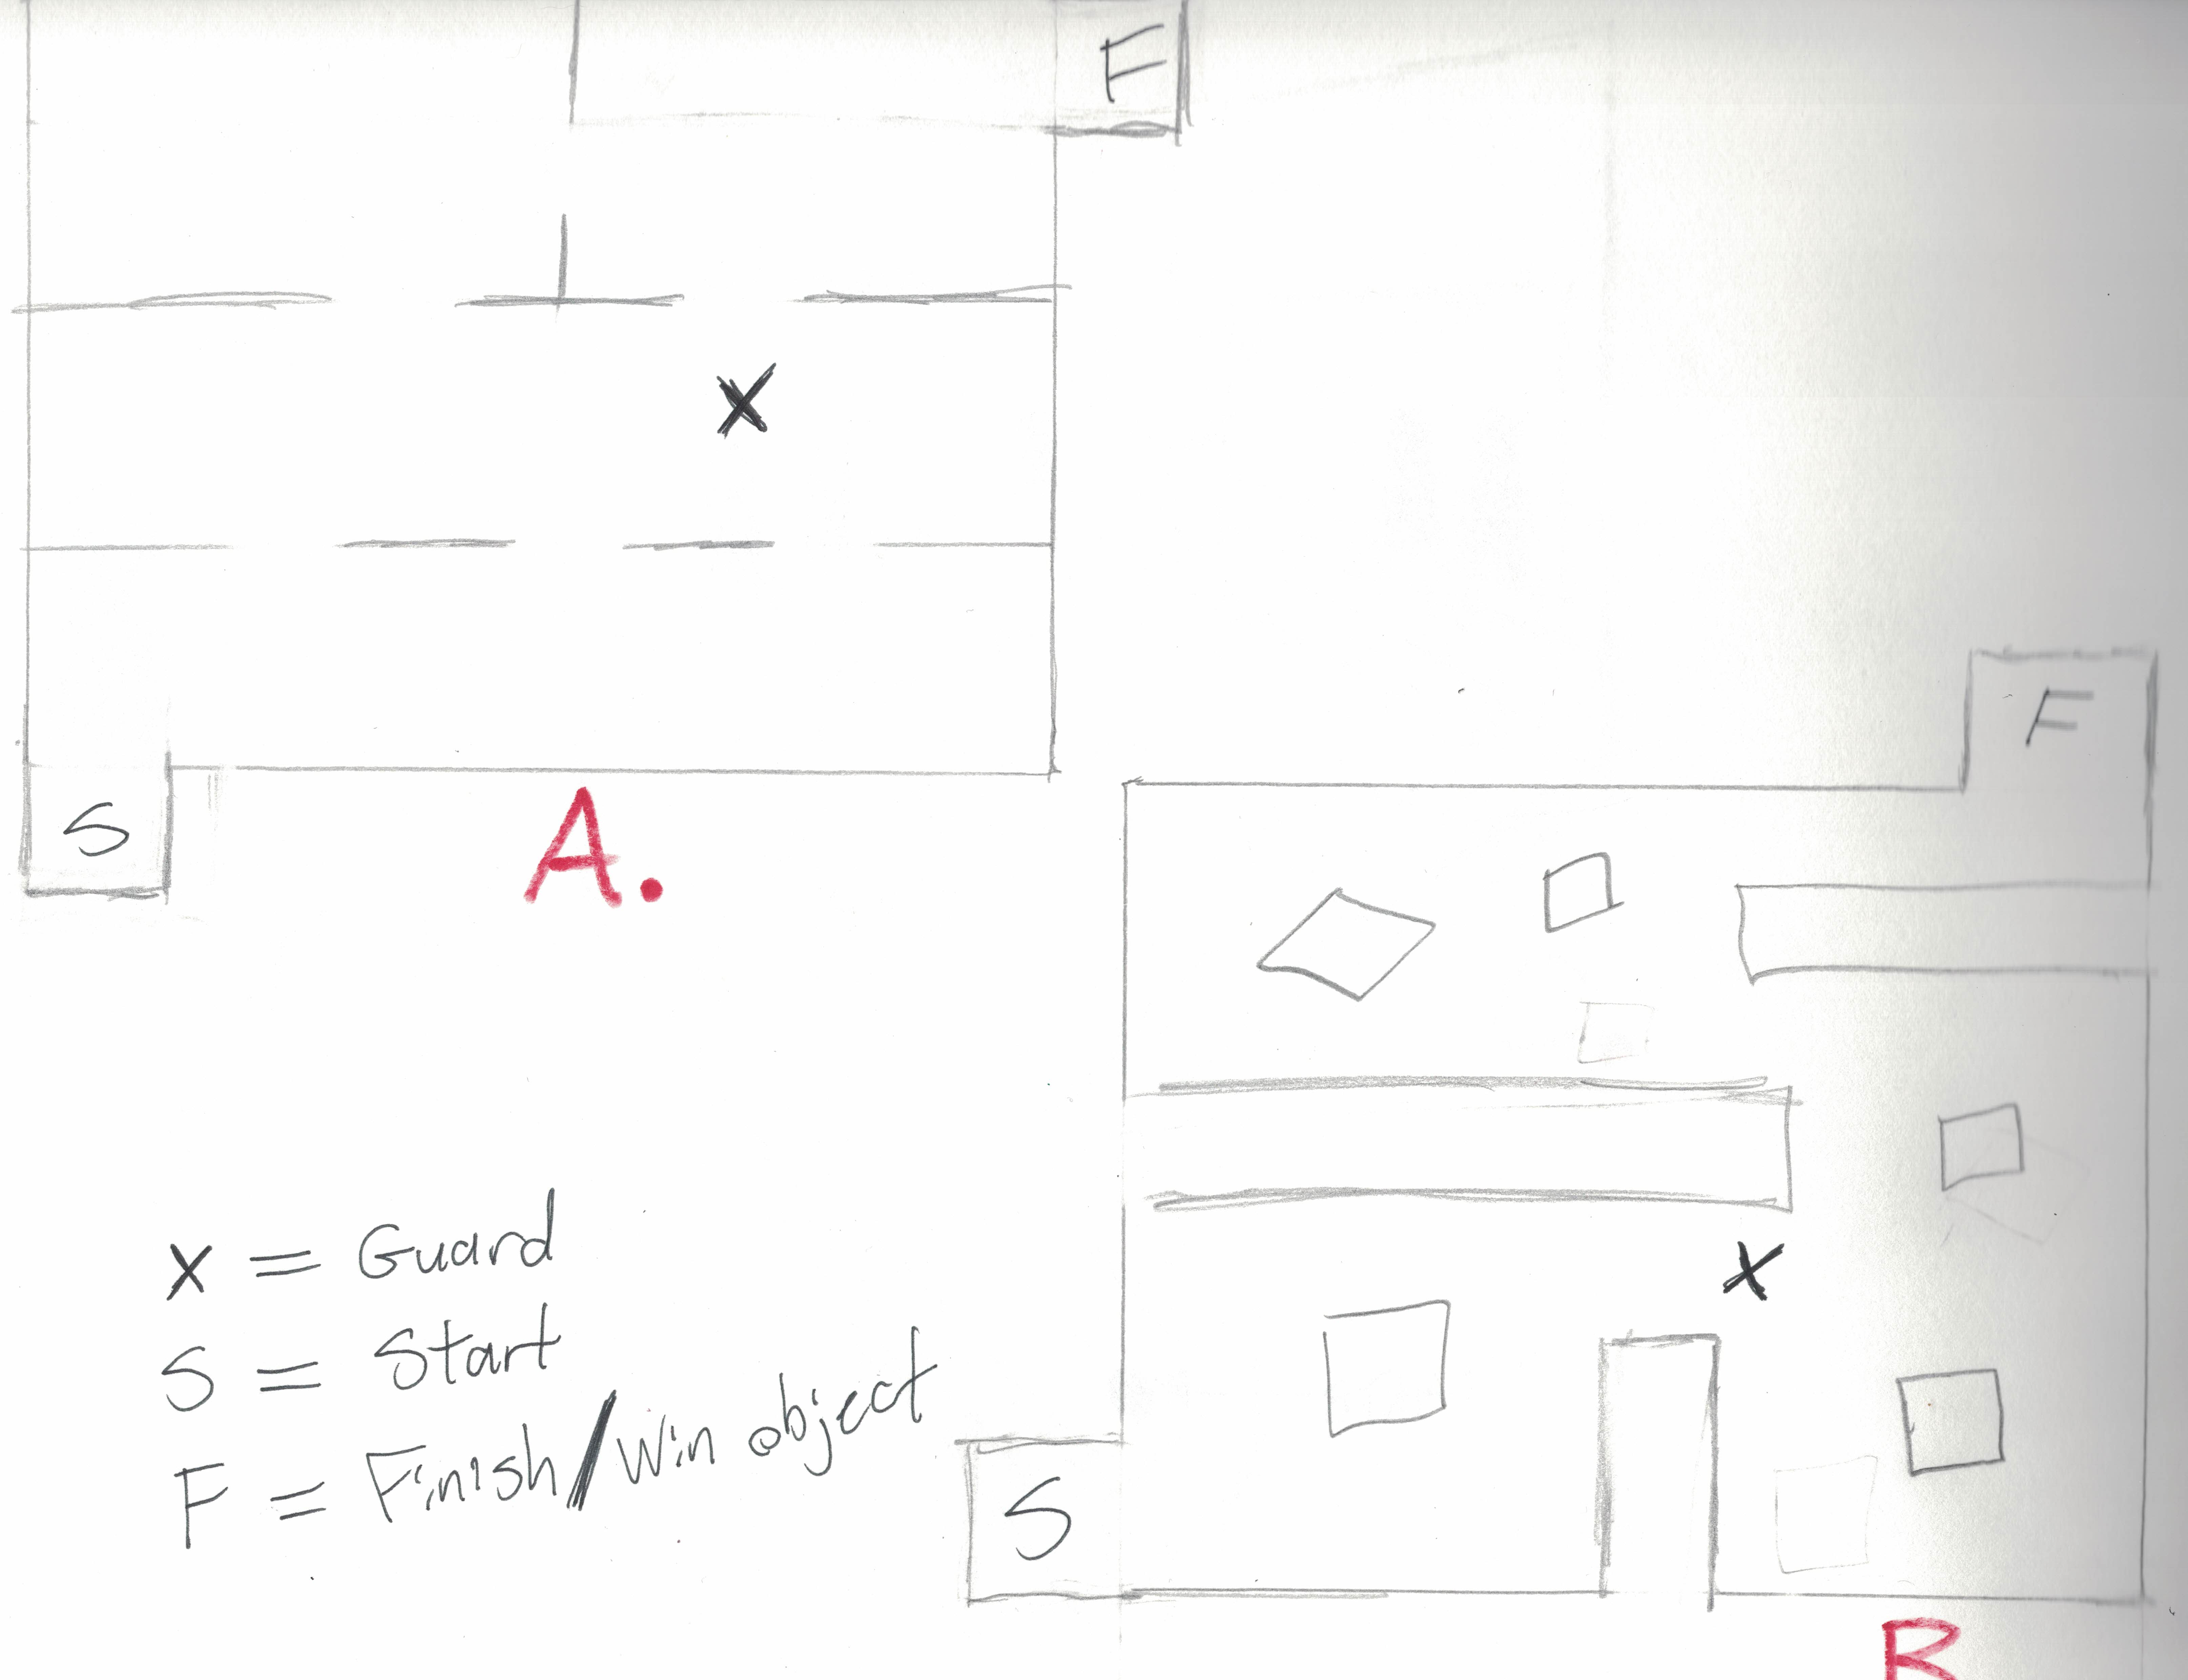 F
X
S
A.
F
X
S
B
X = Guard
S = Start
F = Finish/Win object